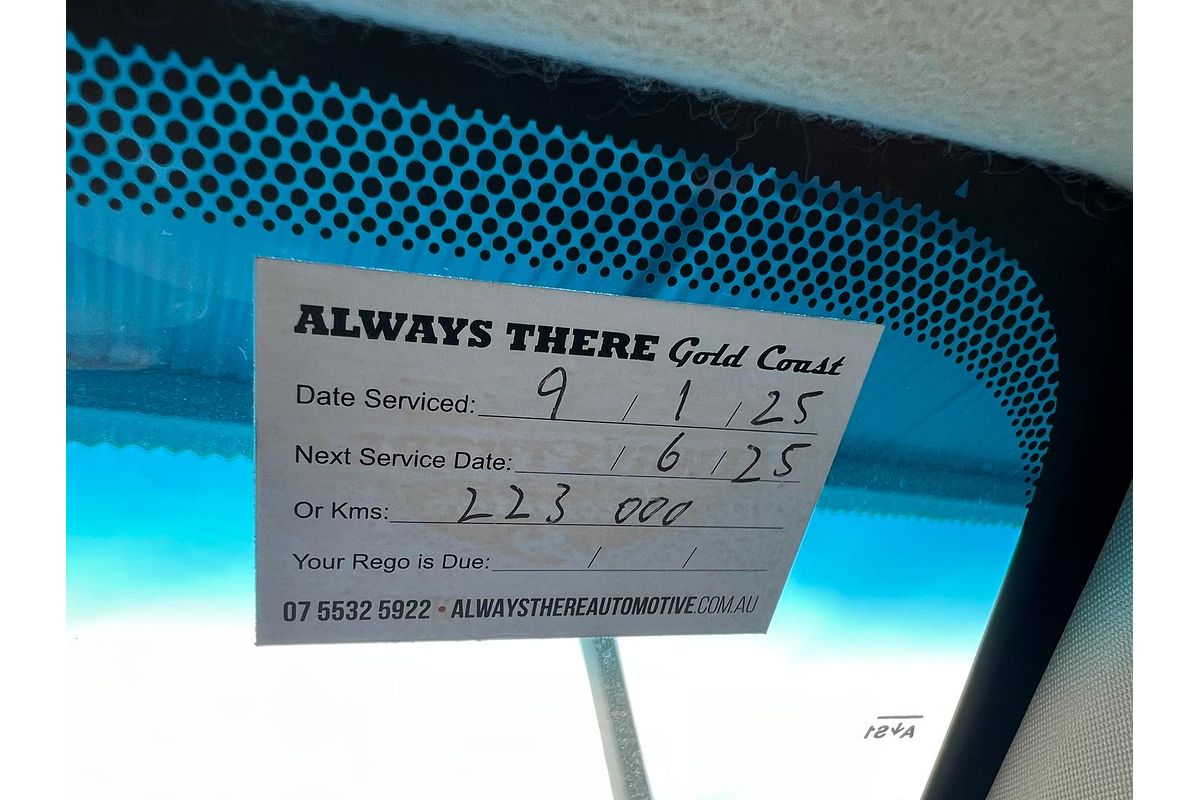 ALWAYS THERE Gold Coast
Date Serviced: 9 / 1 / 25
Next Service Date: / 6 / 25
Or Kms: 223 000
Your Rego is Due: / /
07 5532 5922 • ALWAYSTHEREAUTOMOTIVE.COM.AU
AS1